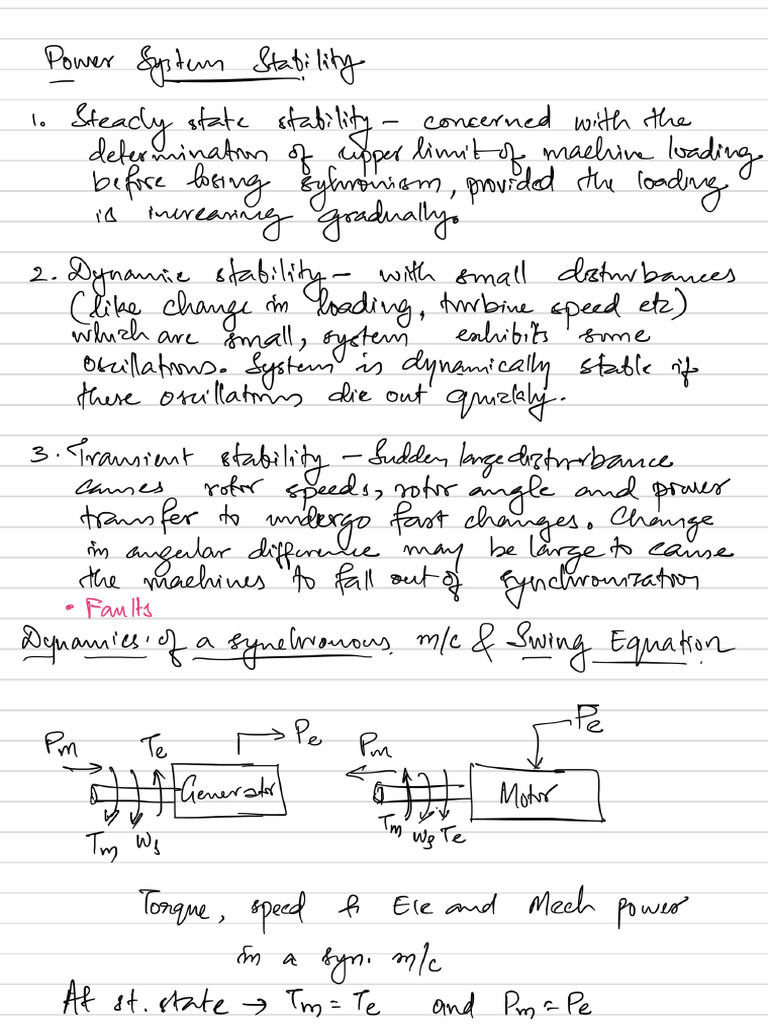 Power System Stability
1. Steady state stability – concerned with the
determination of upper limit of machine loading
before losing sychronism, provided the loading
is increasing gradually.
2. Dynamic stability – with small disturbances
(like change in loading, turbine speed etc)
which are small, system exhibits some
oscillations. System is dynamically stable if
these oscillations die out quickly.
3. Transient stability – Sudden large disturbance
causes rotor speeds, rotor angle and power
transfer to undergo fast changes. Change
in angular difference may be large to cause
the machines to fall out of synchronization
• Faults
Dynamics of a synchronous m/c & Swing Equation
Pm Te Pe
Generator
Tm Ws
Pm Pe
Motor
Tm Ws Te
Torque, speed & Ele and Mech power
in a syn. m/c
At st. state → Tm = Te and Pm = Pe